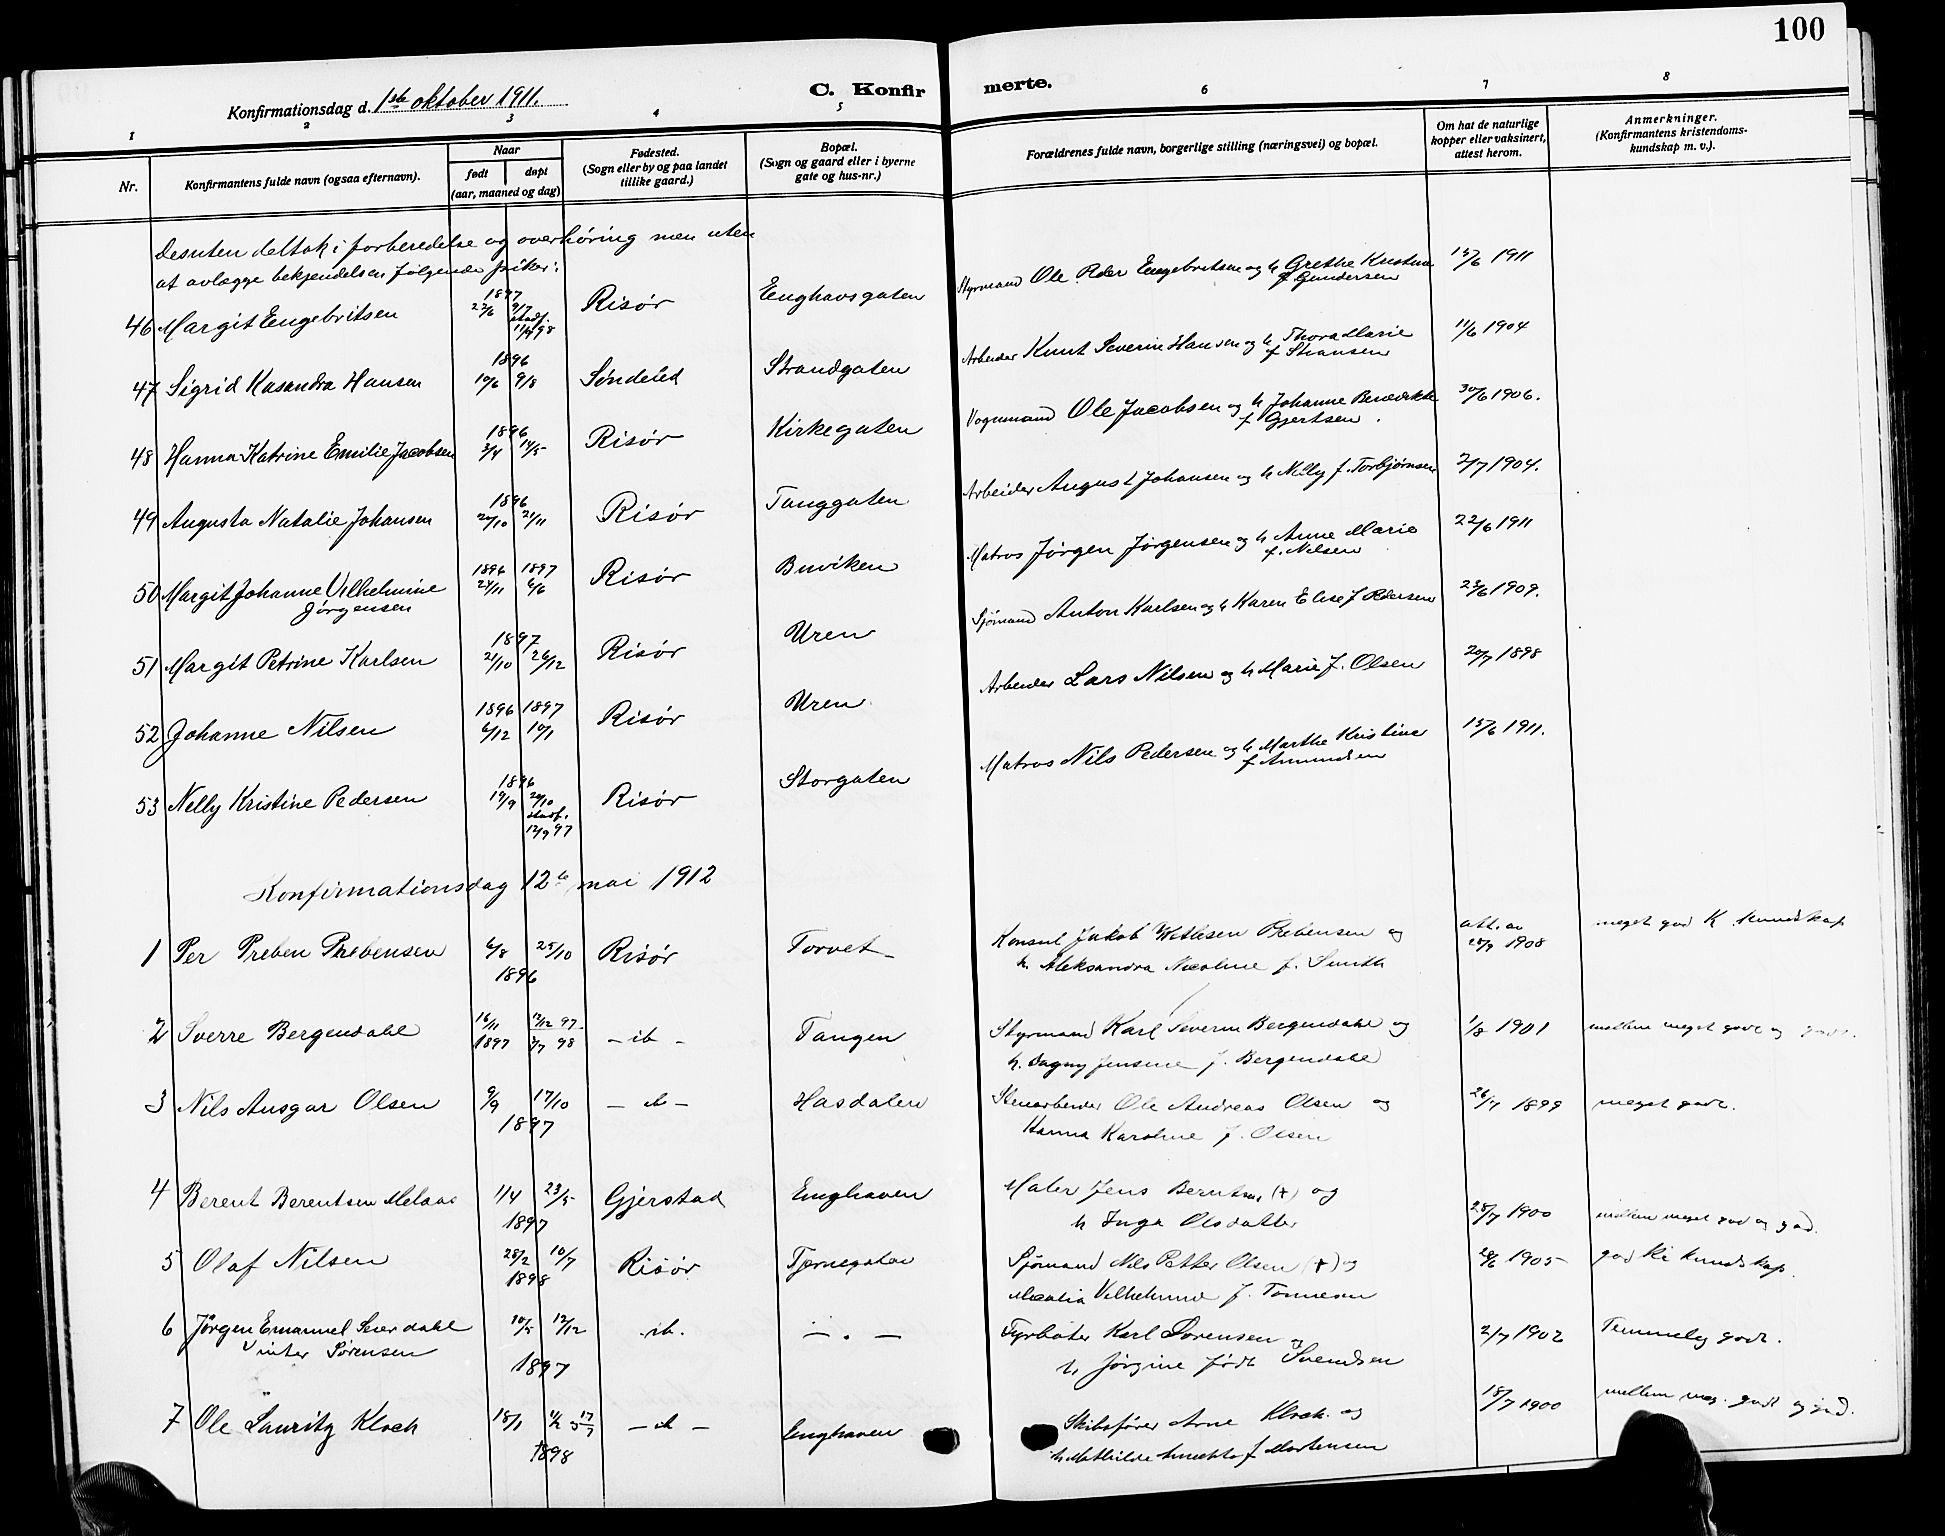 100
Konfirmationsdag d. 1ste oktober 1911.
C. Konfirmerte.
1 2 3 4 5 6 7 8
Nr.
Konfirmantens fulde navn (ogsaa efternavn).
Naar
født døpt
(aar, maaned og dag)
Fødested.
(Sogn eller by og paa landet
tillike gaard.)
Bopæl.
(Sogn og gaard eller i byerne
gate og hus-nr.)
Forældrenes fulde navn, borgerlige stilling (næringsvei) og bopæl.
Om hat de naturlige
kopper eller vaksinert,
attest herom.
Anmerkninger.
(Konfirmantens kristendoms-
kundskap m. v.).
Desuten deltok i forberedelse og overhøring men uten
at avlægge bekjendelsen følgende piker:
46 Margit Engebritsen 1897 22/6 9/7 stadf. 11/9 98 Risør Enghavsgaten Styrmand Ole Peder Engebritsen og h Grethe Kristine f Gundersen 15/6 1911
47 Sigrid Kasandra Hansen 1896 10/6 9/8 Søndeled Strandgaten Arbeider Knut Severin Hansen og h Thora Marie f 11/6 1904
48 Hanna Katrine Emilie Jacobsen 1896 3/4 14/5 Risør Kirkegaten Vognmand Ole Jacobsen og h Johanne Benedikte f Gjertsen. 30/6 1906.
49 Augusta Natalie Johansen 1896 20/10 21/11 Risør Tanggaten Arbeider August Johansen og h Nilly f. Torbjørnsen 2/7 1904.
50 Margit Johanne Vilhelmine Jørgensen 1896 24/11 1897 6/6 Risør Buviken Matros Jørgen Jørgensen og h Anne Marie f. Nilsen 22/6 1911
51 Margit Petrine Karlsen 1897 21/10 26/12 Risør Uren Sjømand Anton Karlsen og h Karen Elise f Pedersen 23/6 1909.
52 Johanne Nilsen 1896 6/12 1897 10/1 Risør Uren Arbeider Lars Nilsen og h Marie f. Olsen 20/7 1898
53 Nelly Kristine Pedersen 1896 19/9 20/10 stadf. 12/9 97 Risør Storgaten Matros Nils Pedersen og h Marthe Kristine f Amundsen 15/6 1911.
Konfirmationsdag 12te mai 1912
1 Per Preben Prebensen 6/8 25/10 1896 Risør Torvet Konsul Jakob Wetlesen Prebensen og
h. Aleksandra Nicoline f. Smith att. av 28/9 1908 meget god K. kundskap
2 Sverre Bergendahl 16/11 1897 12/12 97 3/7 98 - ib - Tangen Styrmand Karl Severin Bergendahl og
h. Dagny Jensine f. Bergendahl 1/8 1901 mellem meget godt og godt.
3 Nils Ansgar Olsen 9/9 17/10 1897 - ib - Hasdalen Stenarbeider Ole Andreas Olsen og
Hanna Karoline f. Olsen 26/7 1899 meget godt.
4 Berent Berentsen Melaas 1/4 23/5 1897 Gjerstad Enghaven Maler Jens Berntsen (+) og
h Inga Olsdatter 28/7 1900 mellem meget god og god.
5 Olaf Nilsen 28/2 10/7 1898 Risør Tjernegaten Sjømand Nils Petter Olsen (+) og
Vilhelmine f. 28/6 1905 god kr kundskap.
6 Jørgen Emanuel Seierdahl Vinter Sørensen 10/5 12/12 1897 ib. - . - Fyrbøter Karl Sørensen og
h. Jørgine født Svendsen 2/7 1902 Temmelig godt.
7 Ole Lauritz Kloch 18/1 1898 - ib - Enghaven Skibsfører Arne Kloch og
h Mathilde f Mortensen 18/7 1900 mellem meg. godt og god.